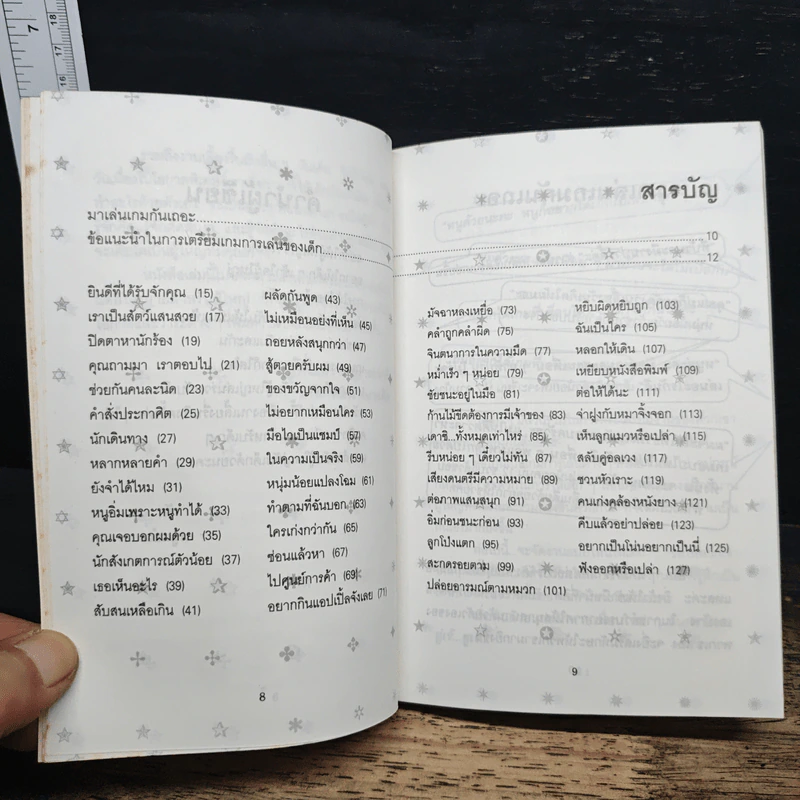 สารบัญ
มาเล่นเกมกันเถอะ 10
ข้อแนะนำในการเตรียมเกมการเล่นของเด็ก 12
ยินดีที่ได้รับจักคุณ (15)
เราเป็นสัตว์แสนสวย (17)
ปิดตาหานักร้อง (19)
คุณถามมา เราตอบไป (21)
ช่วยกันคนละนิด (23)
คำสั่งประกาศิต (25)
นักเดินทาง (27)
หลากหลายคำ (29)
ยังจำได้ไหม (31)
หนูอิ่มเพราะหนูทำได้ (33)
คุณเจอบอกผมด้วย (35)
นักสังเกตการณ์ตัวน้อย (37)
เธอเห็นอะไร (39)
สับสนเหลือเกิน (41)
ผลัดกันพูด (43)
ไม่เหมือนอย่างที่เห็น (45)
ถอยหลังสนุกกว่า (47)
สู้ตายครับผม (49)
ของขวัญจากใจ (51)
ไม่อยากเหมือนใคร (53)
มือไวเป็นแชมป์ (57)
ในความเป็นจริง (59)
หนุ่มน้อยแปลงโฉม (61)
ทำตามที่ฉันบอก (63)
ใครเก่งกว่ากัน (65)
ซ่อนแล้วหา (67)
ไปศูนย์การค้า (69)
อยากกินแอปเปิ้ลจังเลย (71)
8
มัจฉาหลงเหยื่อ (73)
คลำถูกคลำผิด (75)
จินตนาการในความมืด (77)
หม่ำเร็ว ๆ หน่อย (79)
ชัยชนะอยู่ในมือ (81)
ก้านไม้ขีดต้องการมีเจ้าของ (83)
เดาซิ...ทั้งหมดเท่าไหร่ (85)
รีบหน่อย ๆ เดี๋ยวไม่ทัน (87)
เสียงดนตรีมีความหมาย (89)
ต่อภาพแสนสนุก (91)
อิ่มก่อนชนะก่อน (93)
ลูกโป่งแตก (95)
สะกดรอยตาม (99)
ปล่อยอารมณ์ตามหมวก (101)
หยิบผิดหยิบถูก (103)
ฉันเป็นใคร (105)
หลอกให้เดิน (107)
เหยียบหนังสือพิมพ์ (109)
ต่อให้ได้นะ (111)
จ่าฝูงกับหมาจิ้งจอก (113)
เห็นลูกแมวหรือเปล่า (115)
สลับคู่อลเวง (117)
ชวนหัวเราะ (119)
คนเก่งคล้องหนังยาง (121)
คีบแล้วอย่าปล่อย (123)
อยากเป็นโน่นอยากเป็นนี่ (125)
ฟังออกหรือเปล่า (127)
9
7
18
17
16